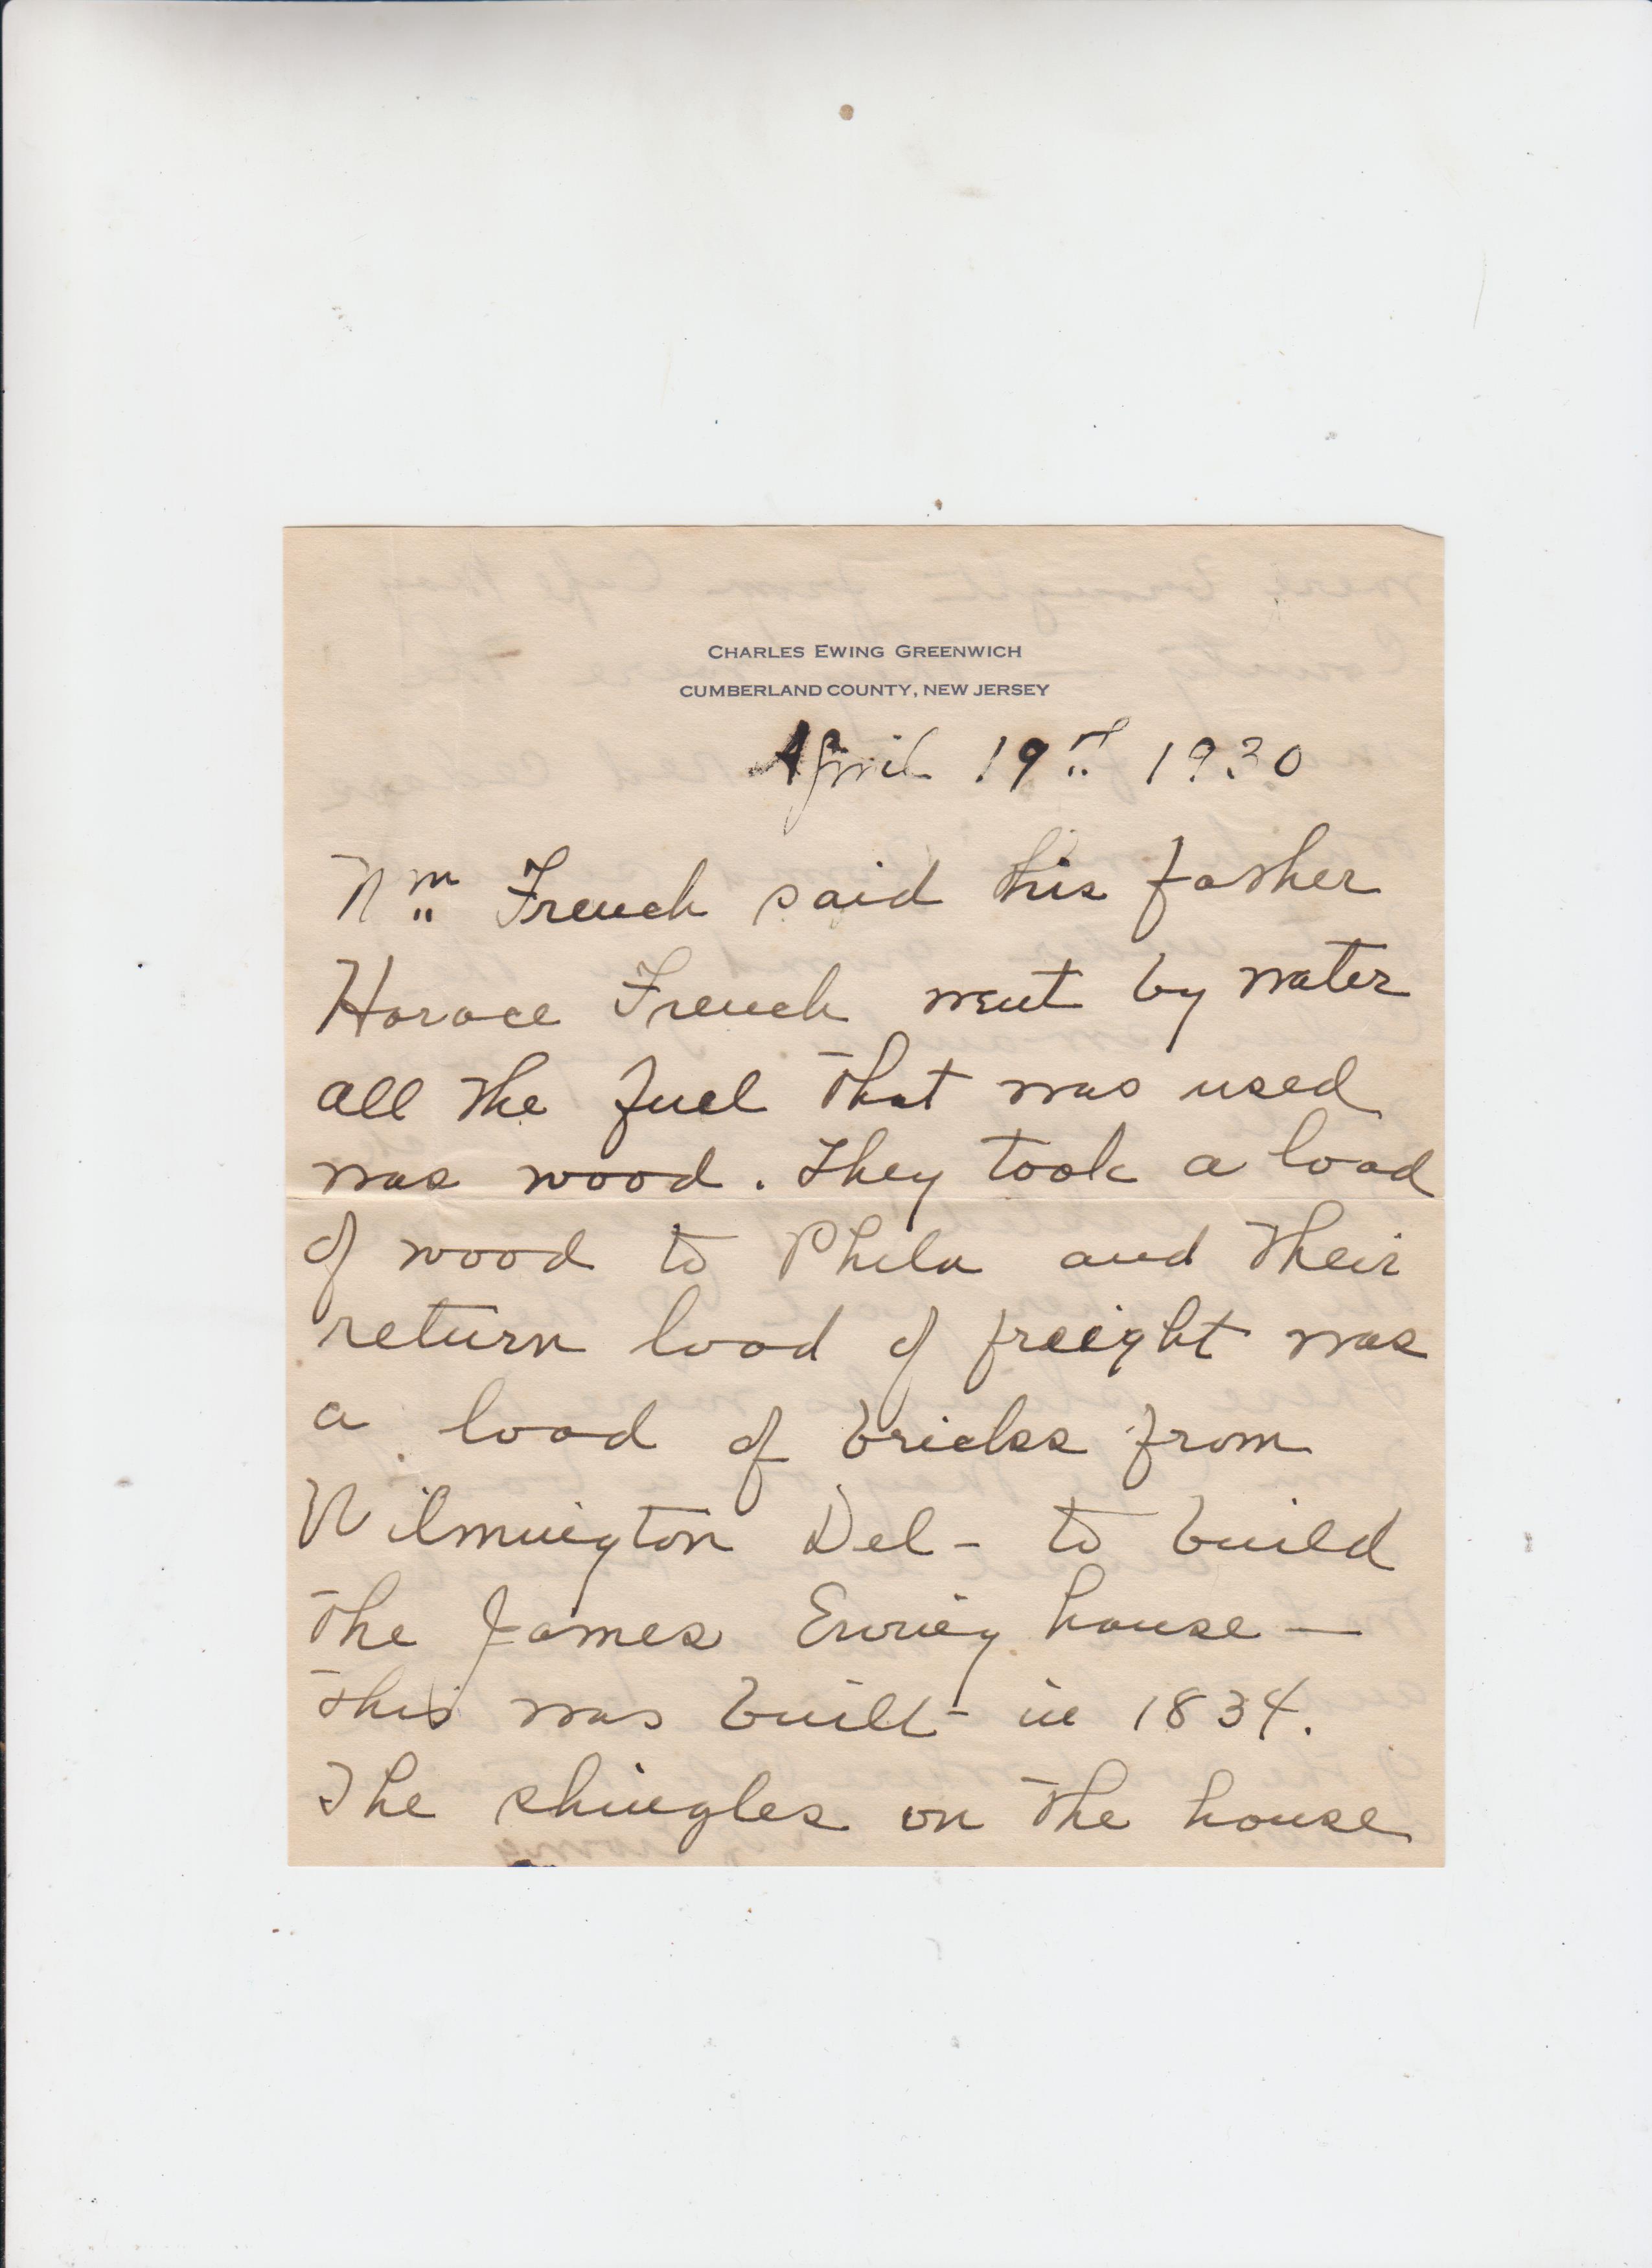 CHARLES EWING GREENWICH
CUMBERLAND COUNTY, NEW JERSEY
April 19th 1930
Wm French said his father
Horace French went by water
all the fuel that was used
was wood. They took a load
of wood to Phila and their
return load of freight was
a load of bricks from
Wilmington Del- to build
the James Ewing house —
this was built in 1834.
The shingles on the house